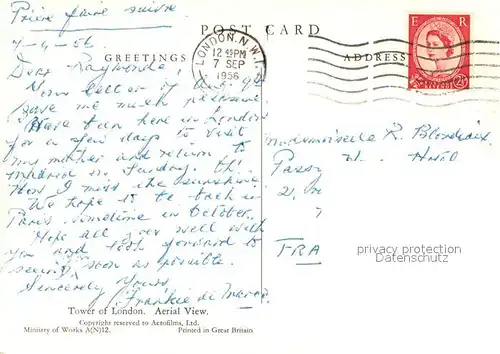 Prière faire suivre
POST CARD
7-9-56
GREETINGS
ADDRESS
LONDON. N.W.1
12 45 PM
7 SEP
1956
E R
Dear Raymonde,
Your letter of Aug 9th
gave me much pleasure.
Have been here in London
for a few days to visit
my mother and return to
Madrid on Sunday the
How I miss the sunshine
We hope to be back in
Paris sometime in October.
Hope all goes well with
you and look forward to
seeing you soon as possible.
Sincerely Yours,
Frankie de
Mademoiselle R. Blondeaux
Hotel
Passy
FRA
privacy protection
Datenschutz
Tower of London. Aerial View.
Copyright reserved to Aerofilms, Ltd.
Ministry of Works A(N)12. Printed in Great Britain